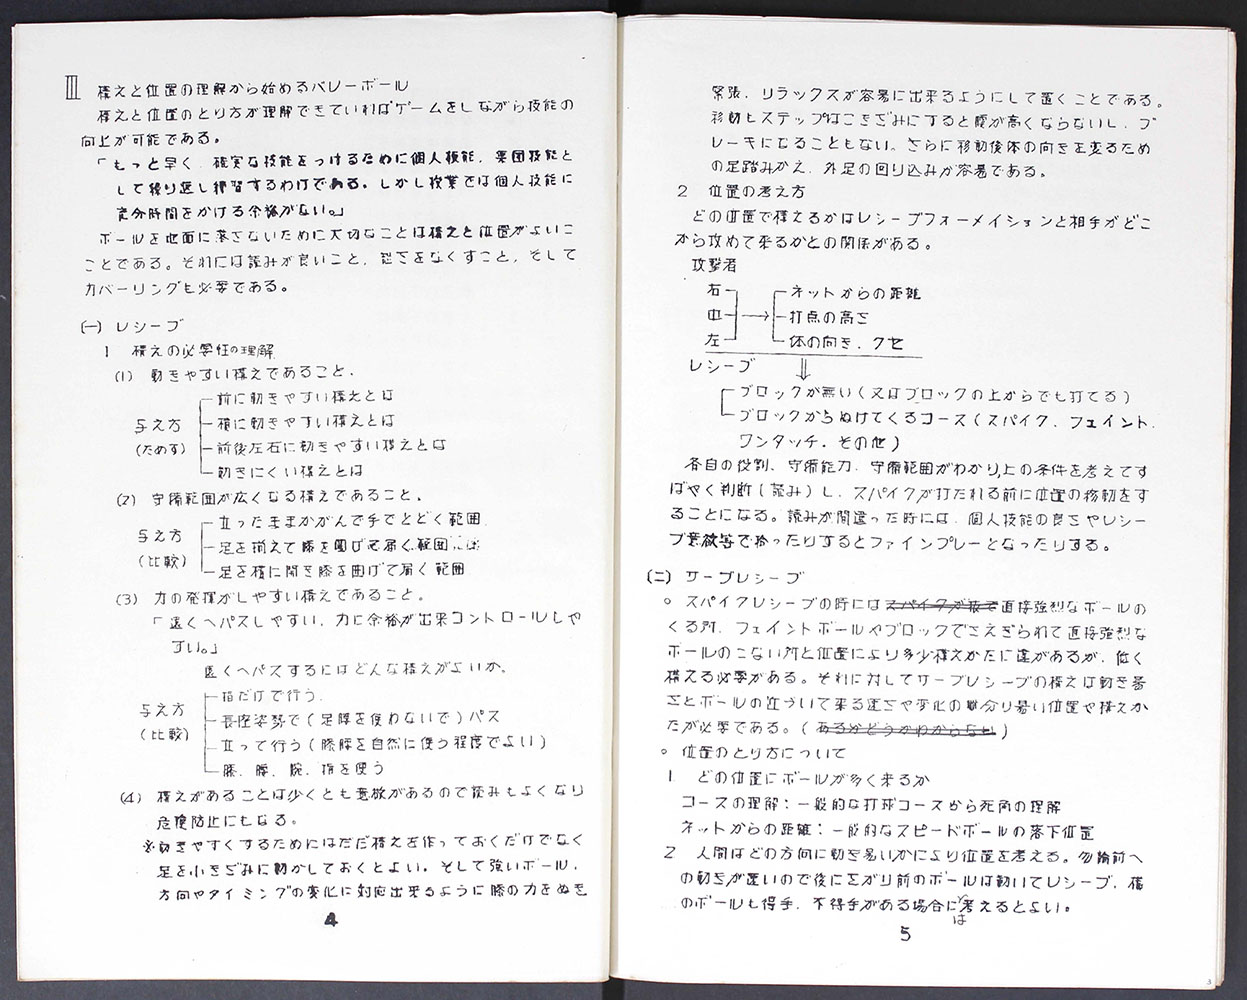 Ⅲ 構えと位置の理解から始めるバレーボール
構えと位置のとり方が理解できていればゲームをしながら技能の
向上が可能である。
「もっと早く、確実な技能をつけるために個人技能、集団技能と
して繰り返し練習するわけである。しかし授業では個人技能に
充分時間をかける余裕がない。」
ボールを地面に落さないために大切なことは構えと位置がよいこ
ことである。それには読みが良いこと、逃さをなくすこと、そして
カバーリングも必要である。
(一) レシーブ
1 構えの必要性の理解
(1) 動きやすい構えであること.
前に動きやすい構えとは
与え方 横に動きやすい構えとは
(ためす) 前後左右に動きやすい構えとは
動きにくい構えとは
(2) 守備範囲が広くなる構えであること。
立ったままかがんで手でとどく範囲
与え方 足を揃えて膝を曲げて届く範囲
(比較) 足を横に開き膝を曲げて届く範囲
(3) 力の発揮がしやすい構えであること。
「遠くへパスしやすい、力に余裕が出来コントロールしや
すい。」
遠くへパスするにはどんな構えがよいか。
指だけで行う.
与え方 長座姿勢で(足腰を使わないで)パス
(比較) 立って行う(膝腰を自然に使う程度でよい)
膝、腰、腕、指を使う
(4) 構えがあることは少くとも意欲があるので読みもよくなり
危険防止にもなる。
※動きやすくするためにはただ構えを作っておくだけでなく
足を小きざみに動かしておくとよい。そして強いボール、
方向やタイミングの変化に対応出来るように膝の力をぬき
4
緊張、リラックスが容易に出来るようにして置くことである。
移動もステップはこきざみにすると腰が高くならないし、ブ
レーキになることもない。さらに移動後体の向きを変るため
の足踏みかえ、外足の回り込みが容易である。
2 位置の考え方
どの位置で構えるかはレシーブフォーメイションと相手がどこ
から攻めて来るかとの関係がある。
攻撃者
右 ネットからの距離
中 → 打点の高さ
左 体の向き、クセ
レシーブ ⇓
ブロックが無い(又はブロックの上からでも打てる)
ブロックからぬけてくるコース(スパイク、フェイント、
ワンタッチ、その他)
各自の役割、守備能力、守備範囲がわかり、上の条件を考えてす
ばやく判断(読み)し、スパイクが打たれる前に位置の移動をす
ることになる。読みが間違った時には、個人技能の良さやレシー
ブ意欲等で拾ったりするとファインプレーとなったりする。
(二) サーブレシーブ
○ スパイクレシーブの時には直接強烈なボールの
くる所、フェイントボールやブロックでさえぎられて直接強烈な
ボールのこない所と位置により多少構えかたに違があるが、低く
構える必要がある。それに対してサーブレシーブの構えは動き易
さとボールの近づいて来る速さや変化の分り易い位置や構えか
たが必要である。(あるかどうかわからない)
○ 位置のとり方について
1 どの位置にボールが多く来るか
コースの理解:一般的な打球コースから死角の理解
ネットからの距離:一般的なスピードボールの落下位置
2 人間はどの方向に動き易いかにより位置を考える。勿論前へ
の動きが速いので後にさがり前のボールは動いてレシーブ、横
のボールも得手、不得手がある場合には考えるとよい。
5